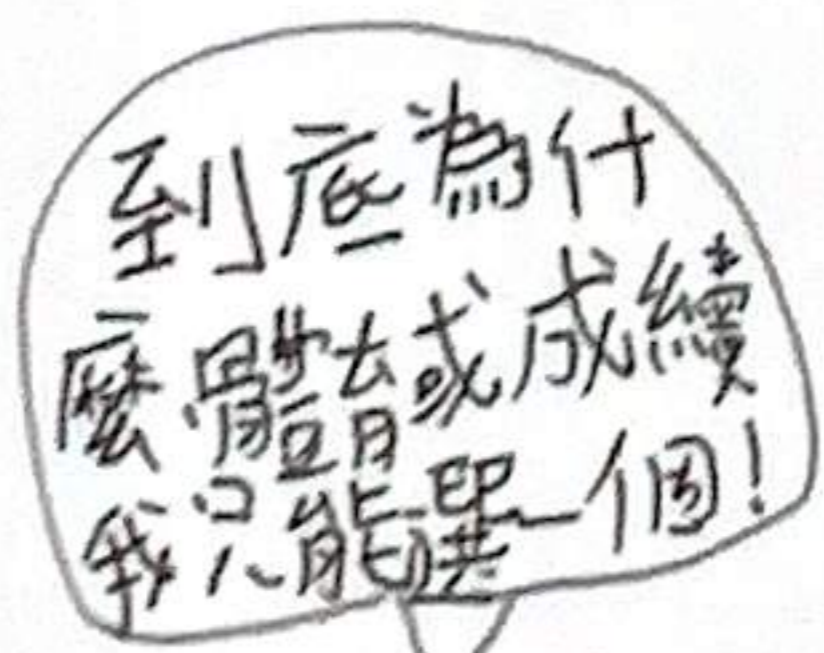 到底為什
麼體育或成績
我只能選一個!